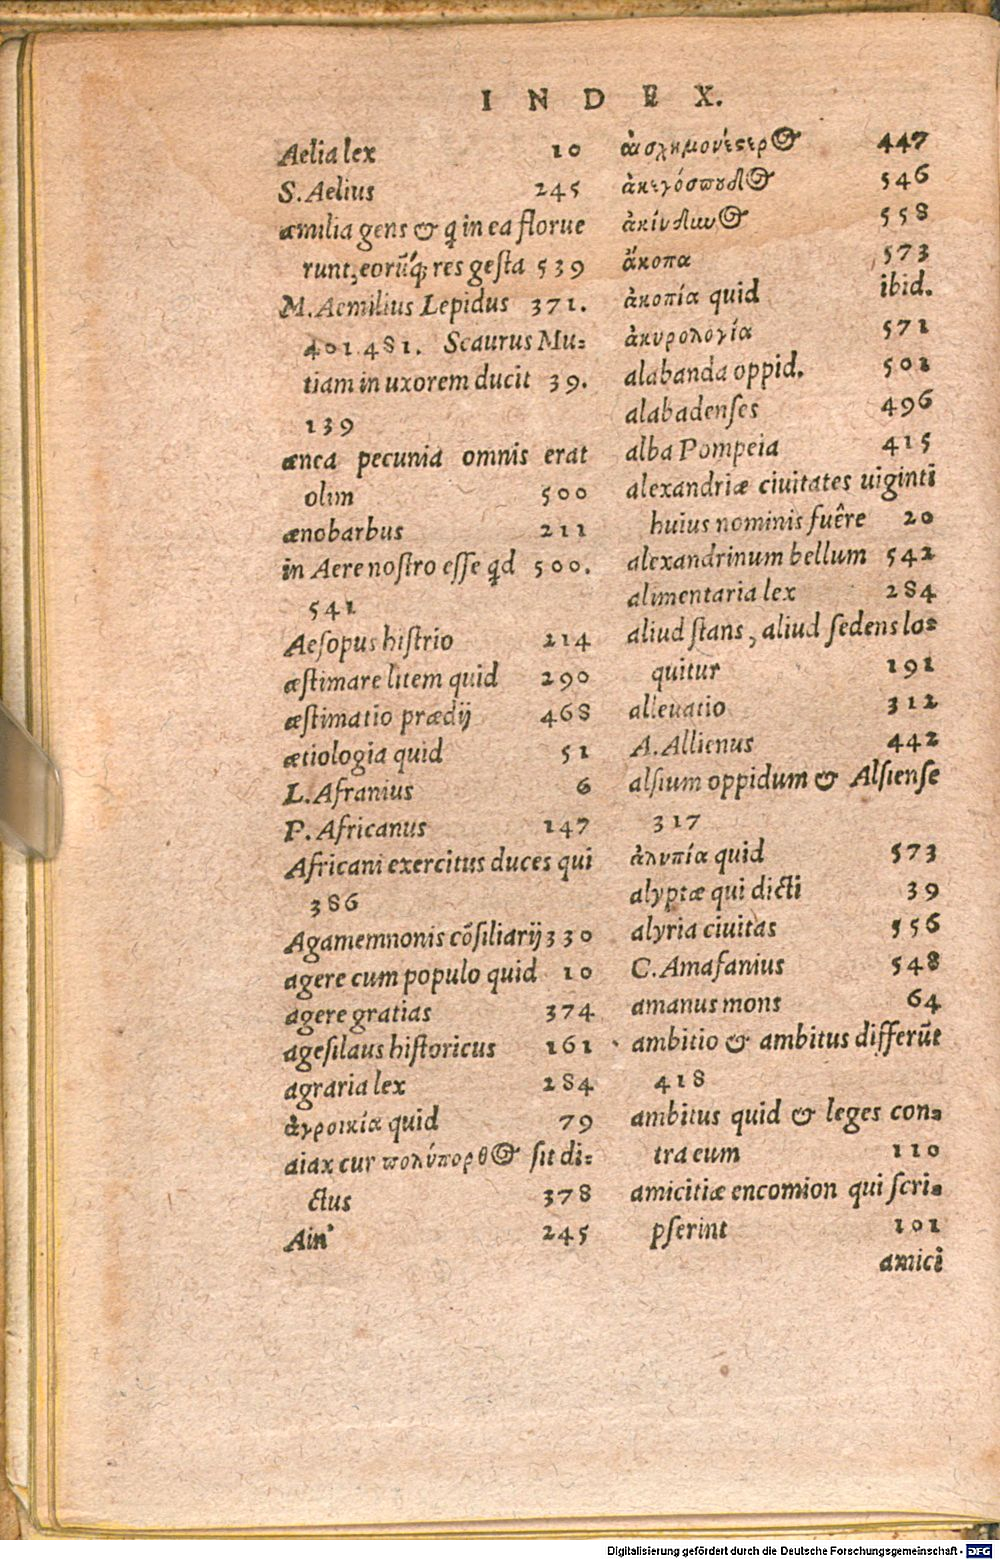 INDEX.
Aelia lex 10
S. Aelius 245
æmilia gens & q̃ in ea florue
runt, eorũq́; res gesta 539
M. Aemilius Lepidus 371.
401 481. Scaurus Mu-
tiam in uxorem ducit 39.
139
ænea pecunia omnis erat
olim 500
ænobarbus 211
in Aere nostro esse qd 500.
541
Aesopus histrio 214
æstimare litem quid 290
æstimatio prædij 468
ætiologia quid 51
L. Afranius 6
P. Africanus 147
Africani exercitus duces qui
386
Agamemnonis cõsiliarij 330
agere cum populo quid 10
agere gratias 374
agesilaus historicus 161
agraria lex 284
ἀγροικία quid 79
aiax cur πολύπορθος sit di-
ctus 378
Ain' 245
447
546
ἀκίνδυνος 558
ἄκοπα 573
ἀκοπία quid ibid.
ἀκυρολογία 571
alabanda oppid. 501
alabadenses 496
alba Pompeia 415
alexandriæ ciuitates uiginti
huius nominis fuêre 20
alexandrinum bellum 542
alimentaria lex 284
aliud stans, aliud sedens lo-
quitur 191
alleuatio 312
A. Allienus 442
alsium oppidum & Alsiense
317
ἀλυπία quid 573
alyptæ qui dicti 39
alyria ciuitas 556
C. Amafanius 548
amanus mons 64
ambitio & ambitus differũt
418
ambitus quid & leges con-
tra eum 110
amicitiæ encomion qui scri-
pserint 101
amici
Digitalisierung gefördert durch die Deutsche Forschungsgemeinschaft - DFG